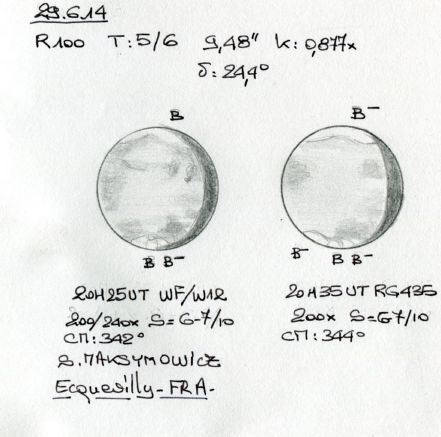 29.6.14
R100 T:5/6 9,48" k: 0,877x
δ: 24,4°
B B-
B B- B- B B-
20H25UT WF/W12 20H35UT RG435
200/240x S=6-7/10 200x S=6-7/10
CΠ: 342° CΠ: 344°
S. MAKSYMOWICZ
Ecquevilly-FRA-